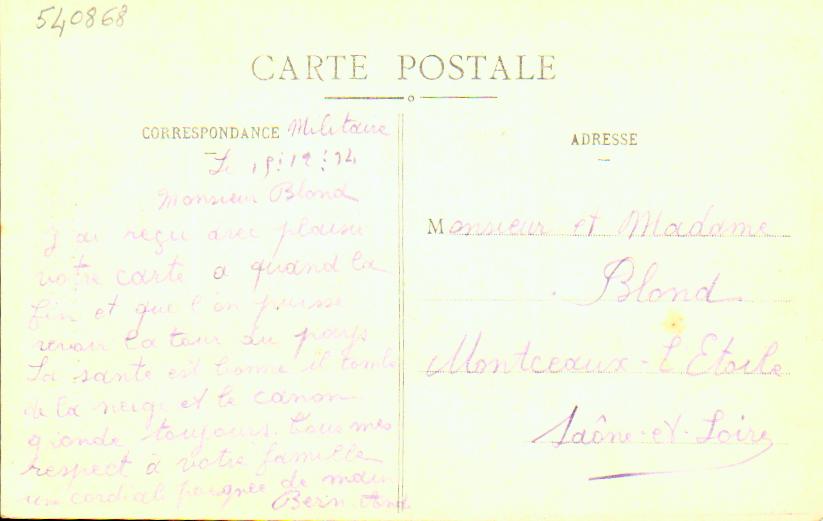 540868
CARTE POSTALE
CORRESPONDANCE Militaire
Le 15:12:14
Monsieur Blond
J'ai reçu avec plaisir
votre carte a quand la
fin et que l'on puisse
revoir la tour du pays
La santé est bonne il tombe
de la neige et le canon
gronde toujours. Tous mes
respect à votre famille
une cordiale poignée de main
ADRESSE
Monsieur et Madame
Blond
Montceaux-l'Etoile
Saône-et-Loire